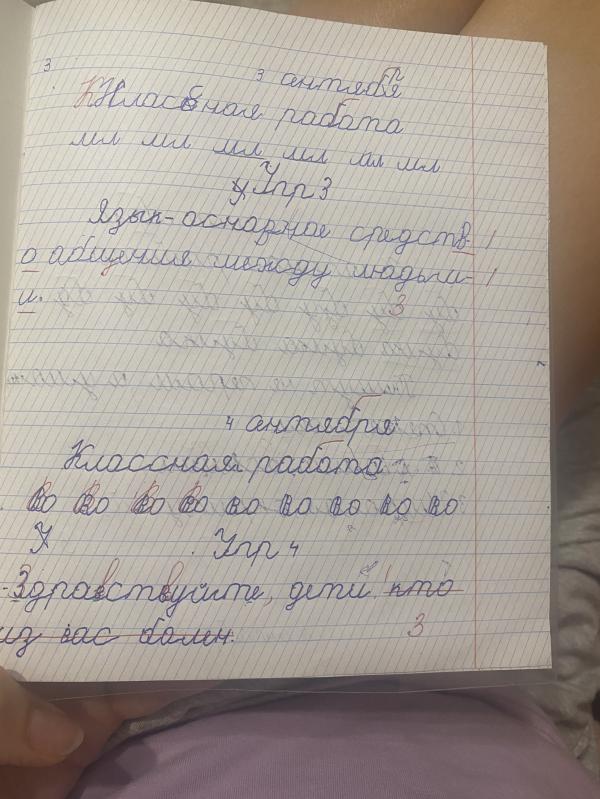 3
3 сентября
Классная работа
мл мл мл мл мл мл
Упр 3
Язык- основное средств-
о общения между людьми-
и.
3
4 сентября
Классная работа
во во во во во во во во во
У Упр 4
-Здравствуйте, дети! кто
из вас болен.
3